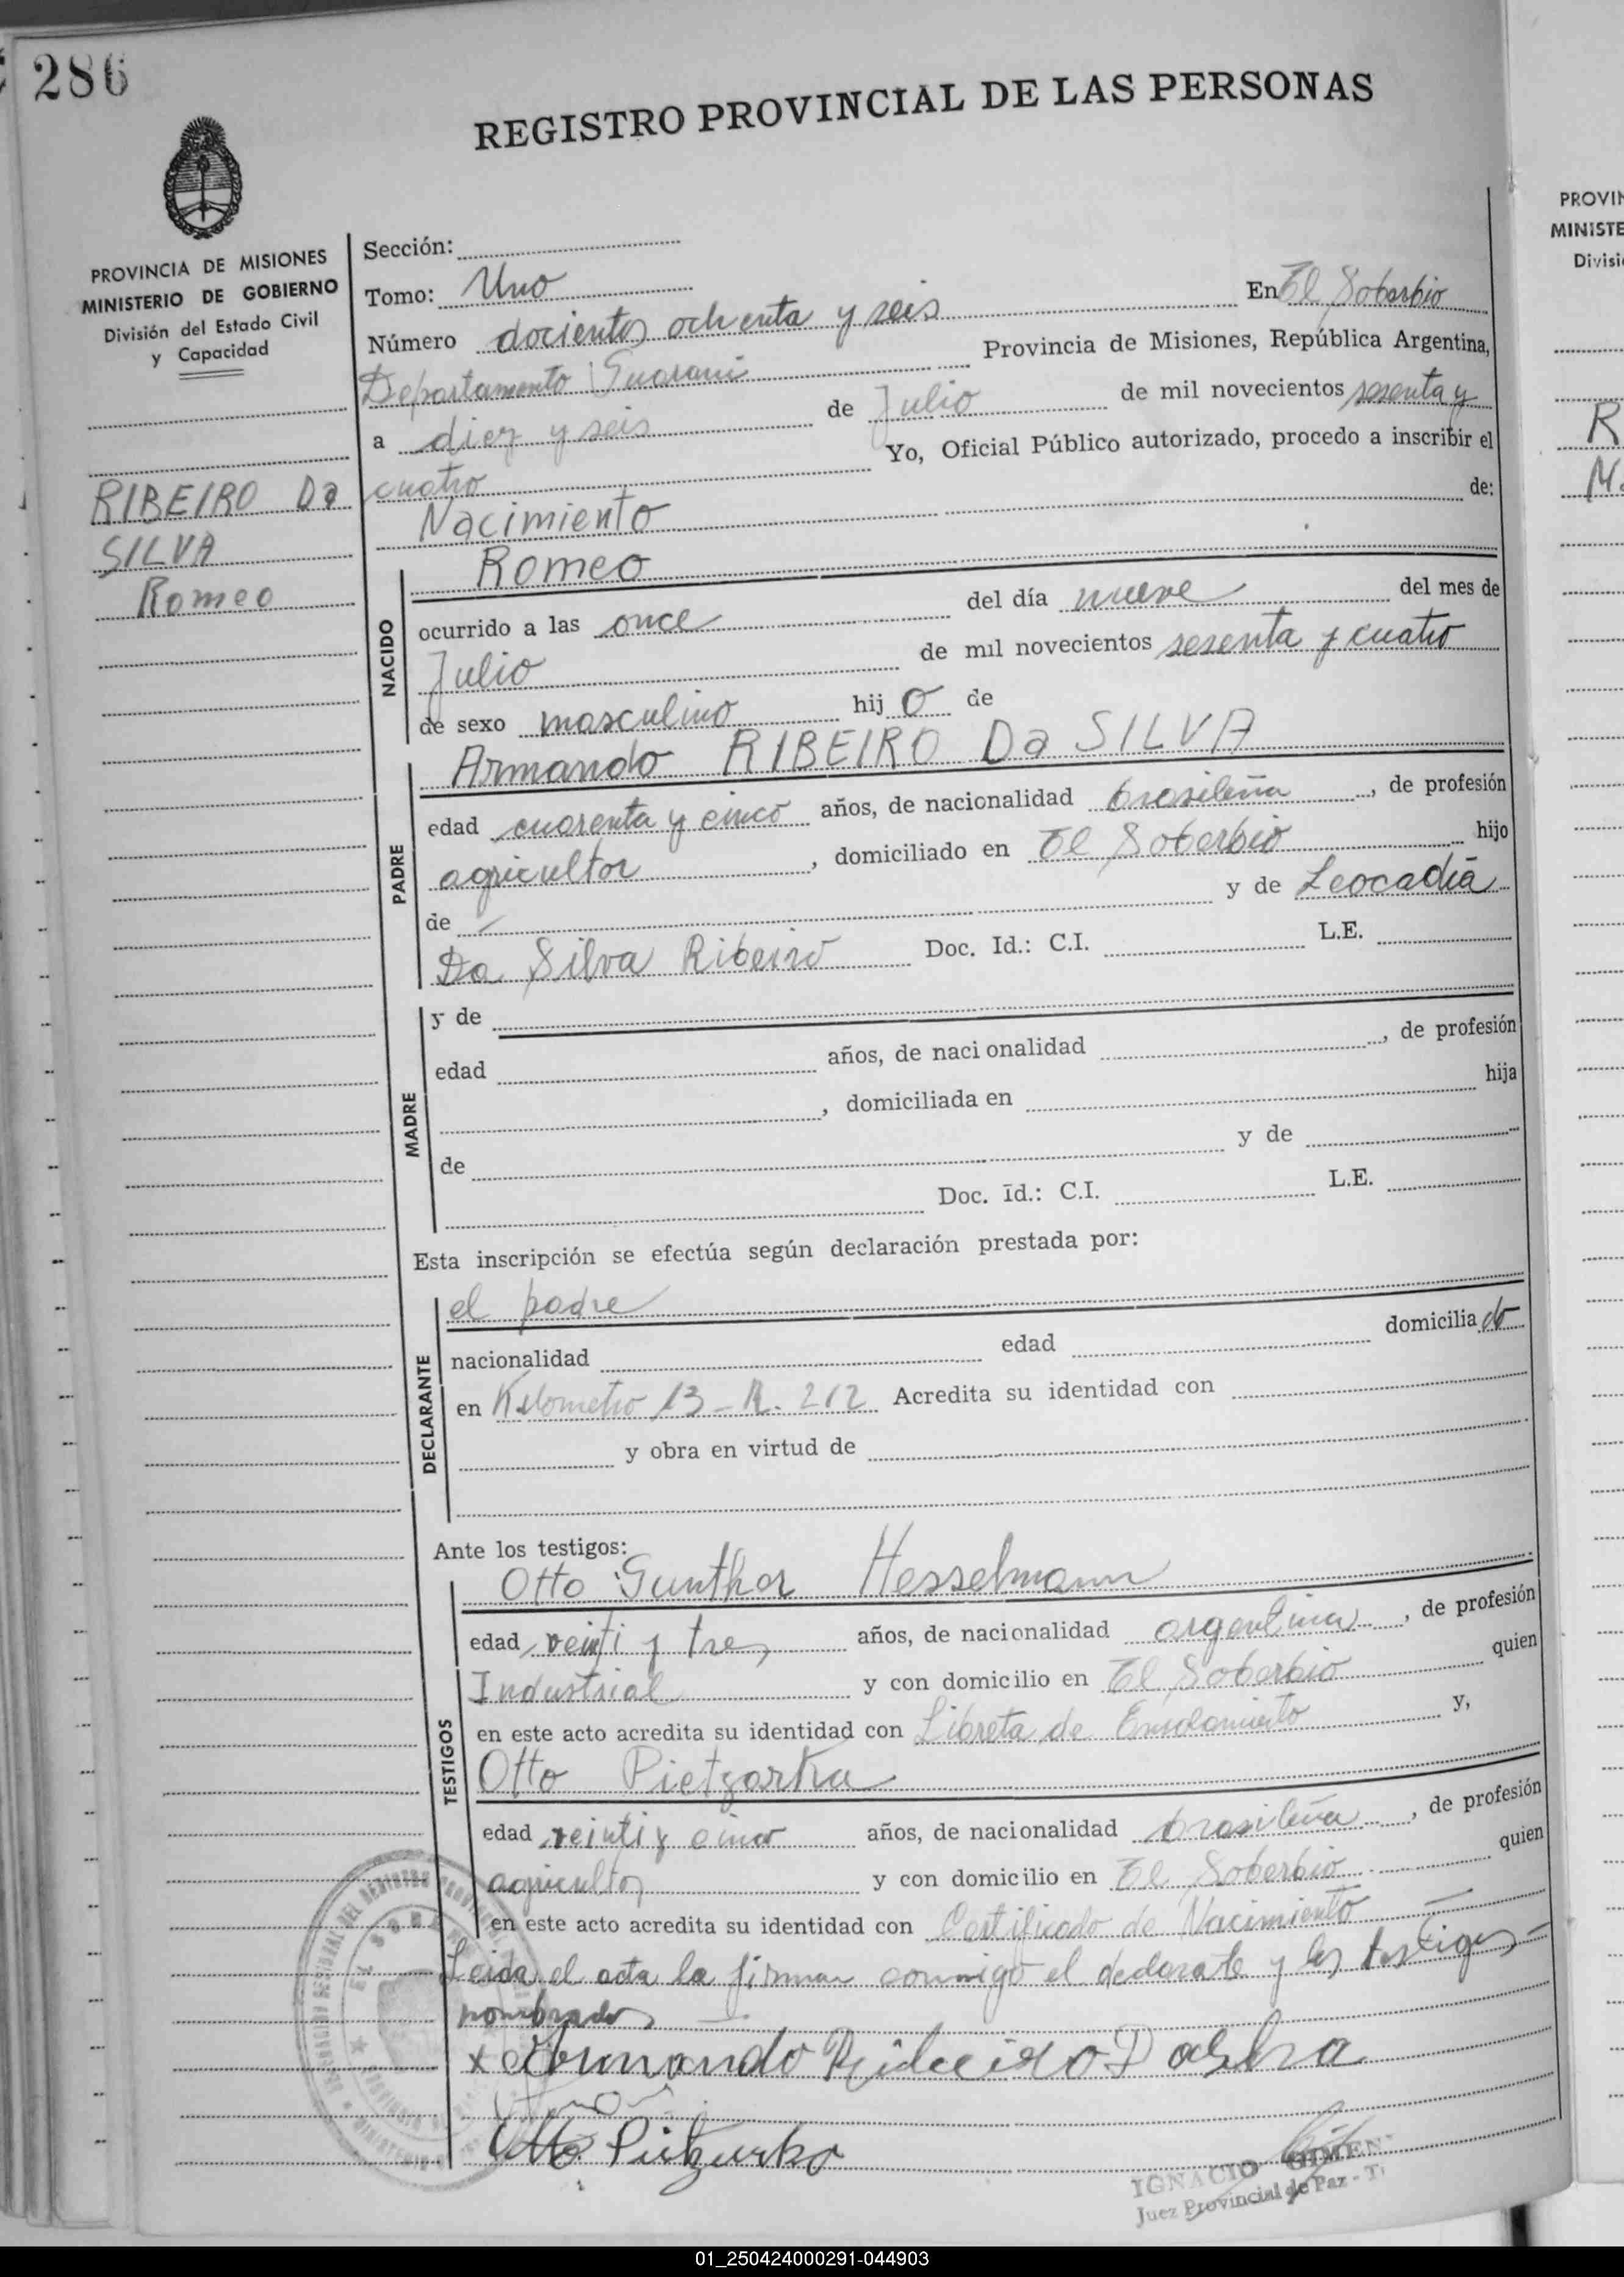 286
REGISTRO PROVINCIAL DE LAS PERSONAS
PROVINCIA DE MISIONES
MINISTERIO DE GOBIERNO
División del Estado Civil
y Capacidad
RIBEIRO Da
SILVA
Romeo
Sección:
Tomo: Uno
Número docientos ochenta y seis En El Soberbio
Departamento Guarani Provincia de Misiones, República Argentina,
a diez y seis de Julio de mil novecientos sesenta y
cuatro Yo, Oficial Público autorizado, procedo a inscribir el
Nacimiento de:
NACIDO
Romeo
ocurrido a las once del día nueve del mes de
Julio de mil novecientos sesenta y cuatro
de sexo masculino hij o de
PADRE
Armando RIBEIRO Da SILVA
edad cuarenta y cinco años, de nacionalidad brasileña, de profesión
agricultor, domiciliado en El Soberbio hijo
de y de Leocadia
Da Silva Ribeiro Doc. Id.: C.I. L.E.
MADRE
y de
edad años, de nacionalidad , de profesión
, domiciliada en hija
de y de
Doc. Id.: C.I. L.E.
Esta inscripción se efectúa según declaración prestada por:
DECLARANTE
el padre
nacionalidad edad domicilia do
en Kilometro 13 - R. 212 Acredita su identidad con
y obra en virtud de
Ante los testigos:
TESTIGOS
Otto Gunther Hesselmann
edad veinti y tres años, de nacionalidad argentina, de profesión
Industrial y con domicilio en El Soberbio quien
en este acto acredita su identidad con Libreta de Enrolamiento y,
Otto Pietzarka
edad veinti y cinco años, de nacionalidad brasileña, de profesión
agricultor y con domicilio en El Soberbio quien
en este acto acredita su identidad con Certificado de Nacimiento
Leida el acta la firman conmigo el declarate y los testigos
nombrados
x Armando Ribeiro Da Silva
Otto
IGNACIO GIMEN
Juez Provincial de Paz - T
PROVIN
MINISTE
Divisi
R
01_250424000291-044903